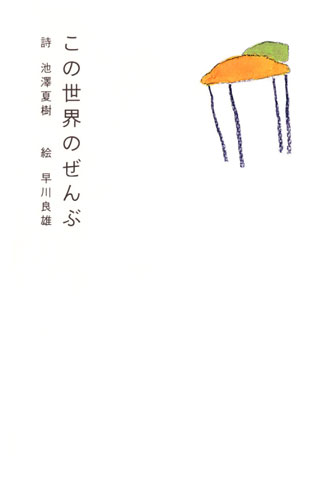 この世界のぜんぶ
詩 池澤夏樹 絵 早川良雄